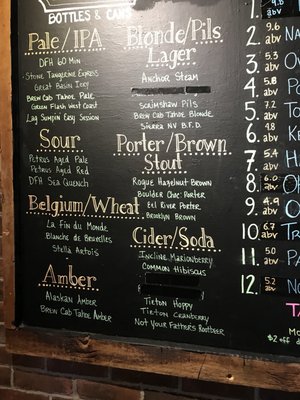 BOTTLES & CANS
Pale/IPA
DFH 60 Min
Stone Tangerine Express
Great Basin Icky
Brew Cab Tahoe Pale
Green Flash West Coast
Lag Sumpin Easy Session
Sour
Petrus Aged Pale
Petrus Aged Red
DFH Sea Quench
Belgium/Wheat
La Fin du Monde
Blanche de Bruxelles
Stella Artois
Amber
Alaskan Amber
Brew Cab Tahoe Amber
Blonde/Pils
Lager
Anchor Steam
Scrimshaw Pils
Brew Cab Tahoe Blonde
Sierra NV B.F.D.
Porter/Brown
Stout
Rogue Hazelnut Brown
Boulder Choc. Porter
Eel River Porter
Brooklyn Brown
Cider/Soda
Incline Marionberry
Common Hibiscus
Tieton Hoppy
Tieton Cranberry
Not Your Father's Rootbeer
abv
2. 9.6 abv
3. 5.3 abv
4. 5.8 abv
5. 7.2 abv
6. 4.8 abv
7. 5.4 abv
8. 6.0 abv
9. 4.9 abv
10. 6.7 abv
11. 5.0 abv
12. 5.2 abv
$2 off